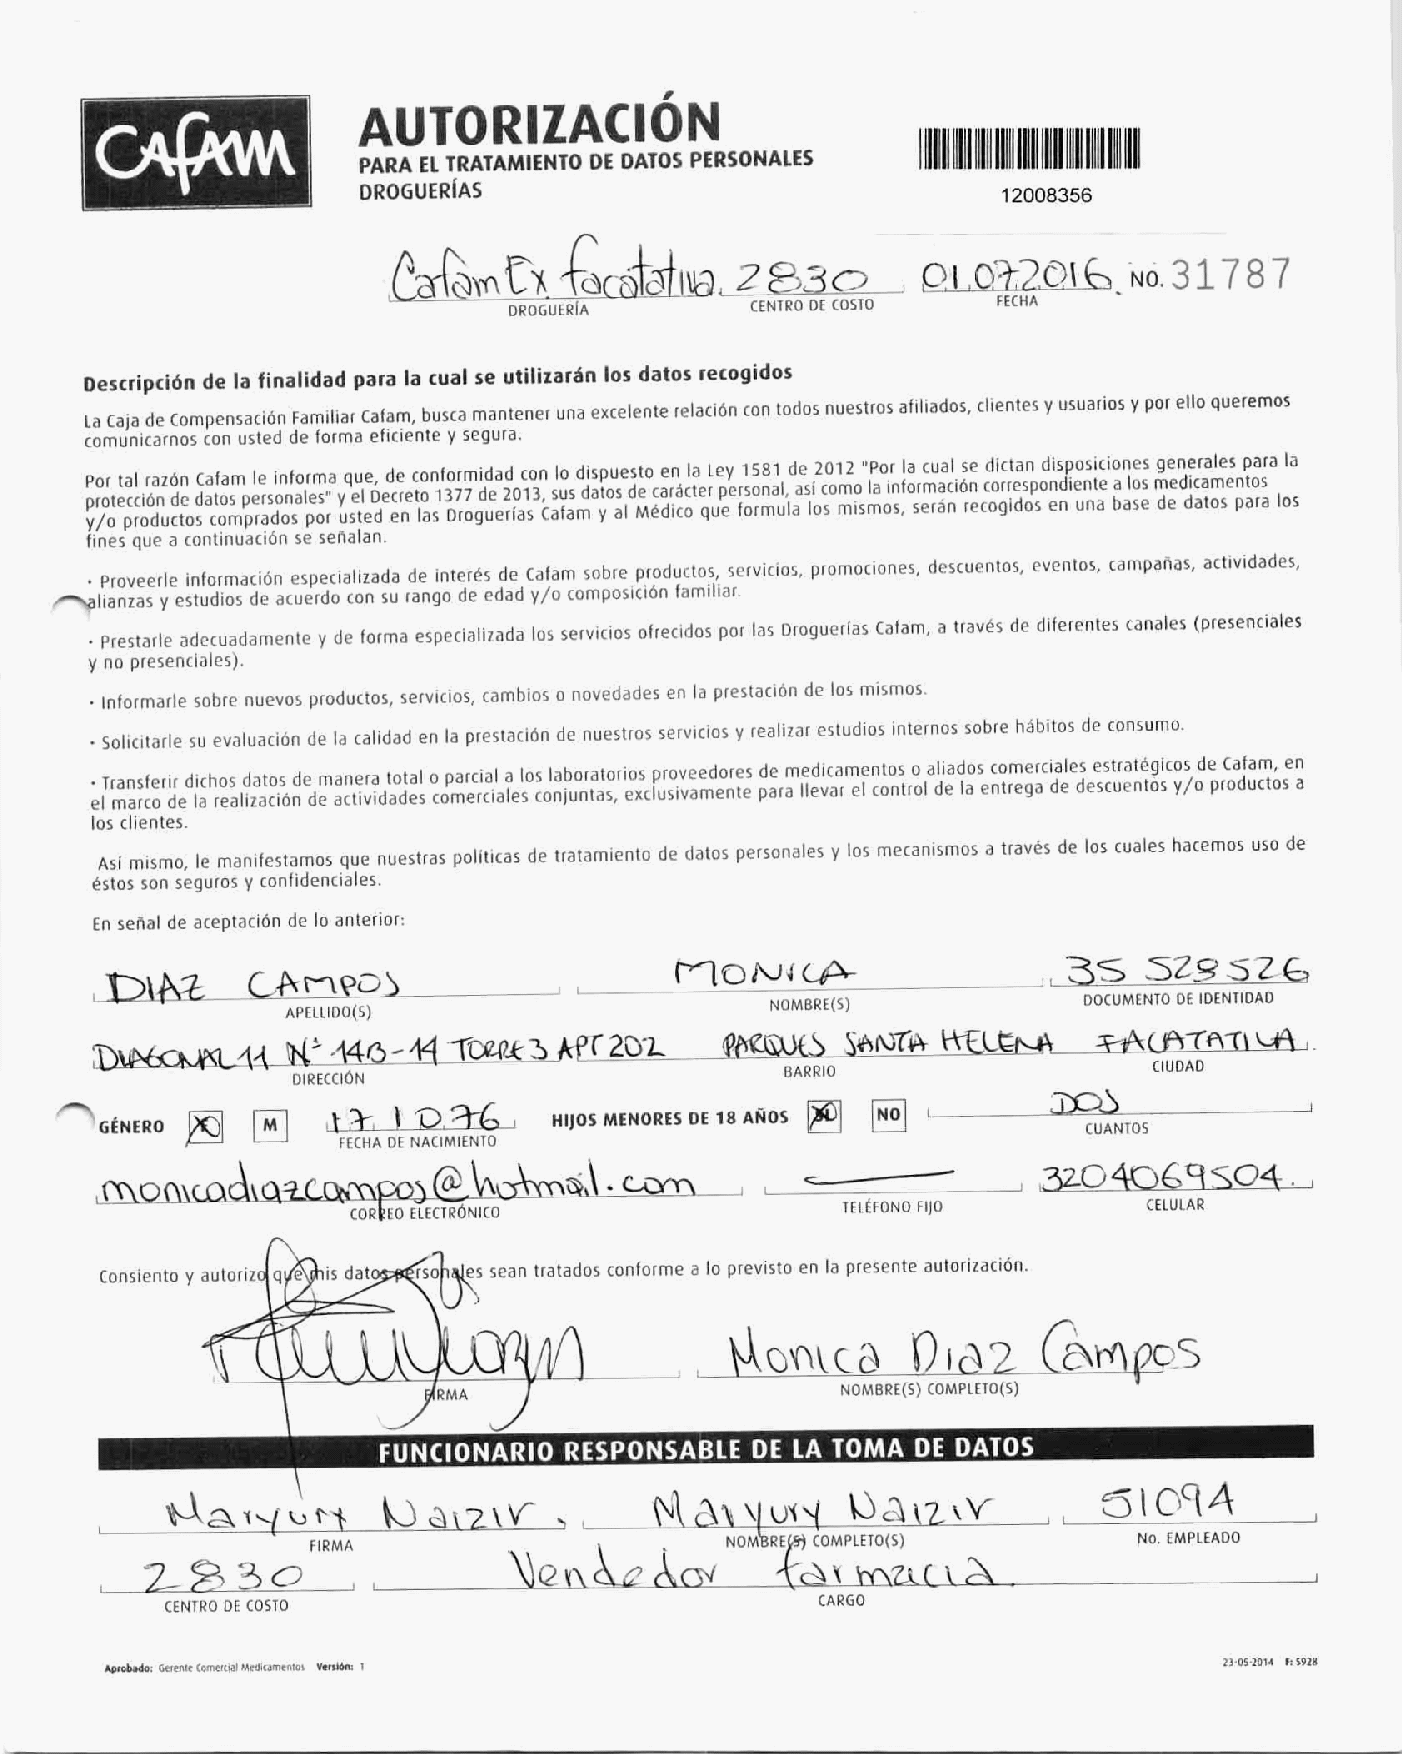 CAFAM
AUTORIZACIÓN
PARA EL TRATAMIENTO DE DATOS PERSONALES
DROGUERÍAS
12008356
Cafam Ex facatativa. 2830 01.07.2016. NO. 31787
DROGUERÍA CENTRO DE COSTO FECHA
Descripción de la finalidad para la cual se utilizarán los datos recogidos
La Caja de Compensación Familiar Cafam, busca mantener una excelente relación con todos nuestros afiliados, clientes y usuarios y por ello queremos
comunicarnos con usted de forma eficiente y segura.
Por tal razón Cafam le informa que, de conformidad con lo dispuesto en la Ley 1581 de 2012 "Por la cual se dictan disposiciones generales para la
protección de datos personales" y el Decreto 1377 de 2013, sus datos de carácter personal, así como la información correspondiente a los medicamentos
y/o productos comprados por usted en las Droguerías Cafam y al Médico que formula los mismos, serán recogidos en una base de datos para los
fines que a continuación se señalan.
· Proveerle información especializada de interés de Cafam sobre productos, servicios, promociones, descuentos, eventos, campañas, actividades,
alianzas y estudios de acuerdo con su rango de edad y/o composición familiar.
· Prestarle adecuadamente y de forma especializada los servicios ofrecidos por las Droguerías Cafam, a través de diferentes canales (presenciales
y no presenciales).
· Informarle sobre nuevos productos, servicios, cambios o novedades en la prestación de los mismos.
· Solicitarle su evaluación de la calidad en la prestación de nuestros servicios y realizar estudios internos sobre hábitos de consumo.
· Transferir dichos datos de manera total o parcial a los laboratorios proveedores de medicamentos o aliados comerciales estratégicos de Cafam, en
el marco de la realización de actividades comerciales conjuntas, exclusivamente para llevar el control de la entrega de descuentos y/o productos a
los clientes.
Así mismo, le manifestamos que nuestras políticas de tratamiento de datos personales y los mecanismos a través de los cuales hacemos uso de
éstos son seguros y confidenciales.
En señal de aceptación de lo anterior:
DIAZ CAMPOS MONICA 35 528526
APELLIDO(S) NOMBRE(S) DOCUMENTO DE IDENTIDAD
DIAGONAL 11 Nº 14B-14 TORRE 3 APT 202 PARQUES SANTA HELENA FACATATIVA.
DIRECCIÓN BARRIO CIUDAD
GÉNERO M 17 10 76 HIJOS MENORES DE 18 AÑOS NO DOS
FECHA DE NACIMIENTO CUANTOS
monicadiazcampos@hotmail.com 3204069504.
CORREO ELECTRÓNICO TELÉFONO FIJO CELULAR
Consiento y autorizo que mis datos personales sean tratados conforme a lo previsto en la presente autorización.
Monica Diaz Campos
FIRMA NOMBRE(S) COMPLETO(S)
FUNCIONARIO RESPONSABLE DE LA TOMA DE DATOS
Maryury Naizir. Maryury Naizir 51094
FIRMA NOMBRE(S) COMPLETO(S) No. EMPLEADO
2830 Vendedor farmacia.
CENTRO DE COSTO CARGO
Aprobado: Gerente Comercial Medicamentos Versión: 1 23-05-2014 F: 5928